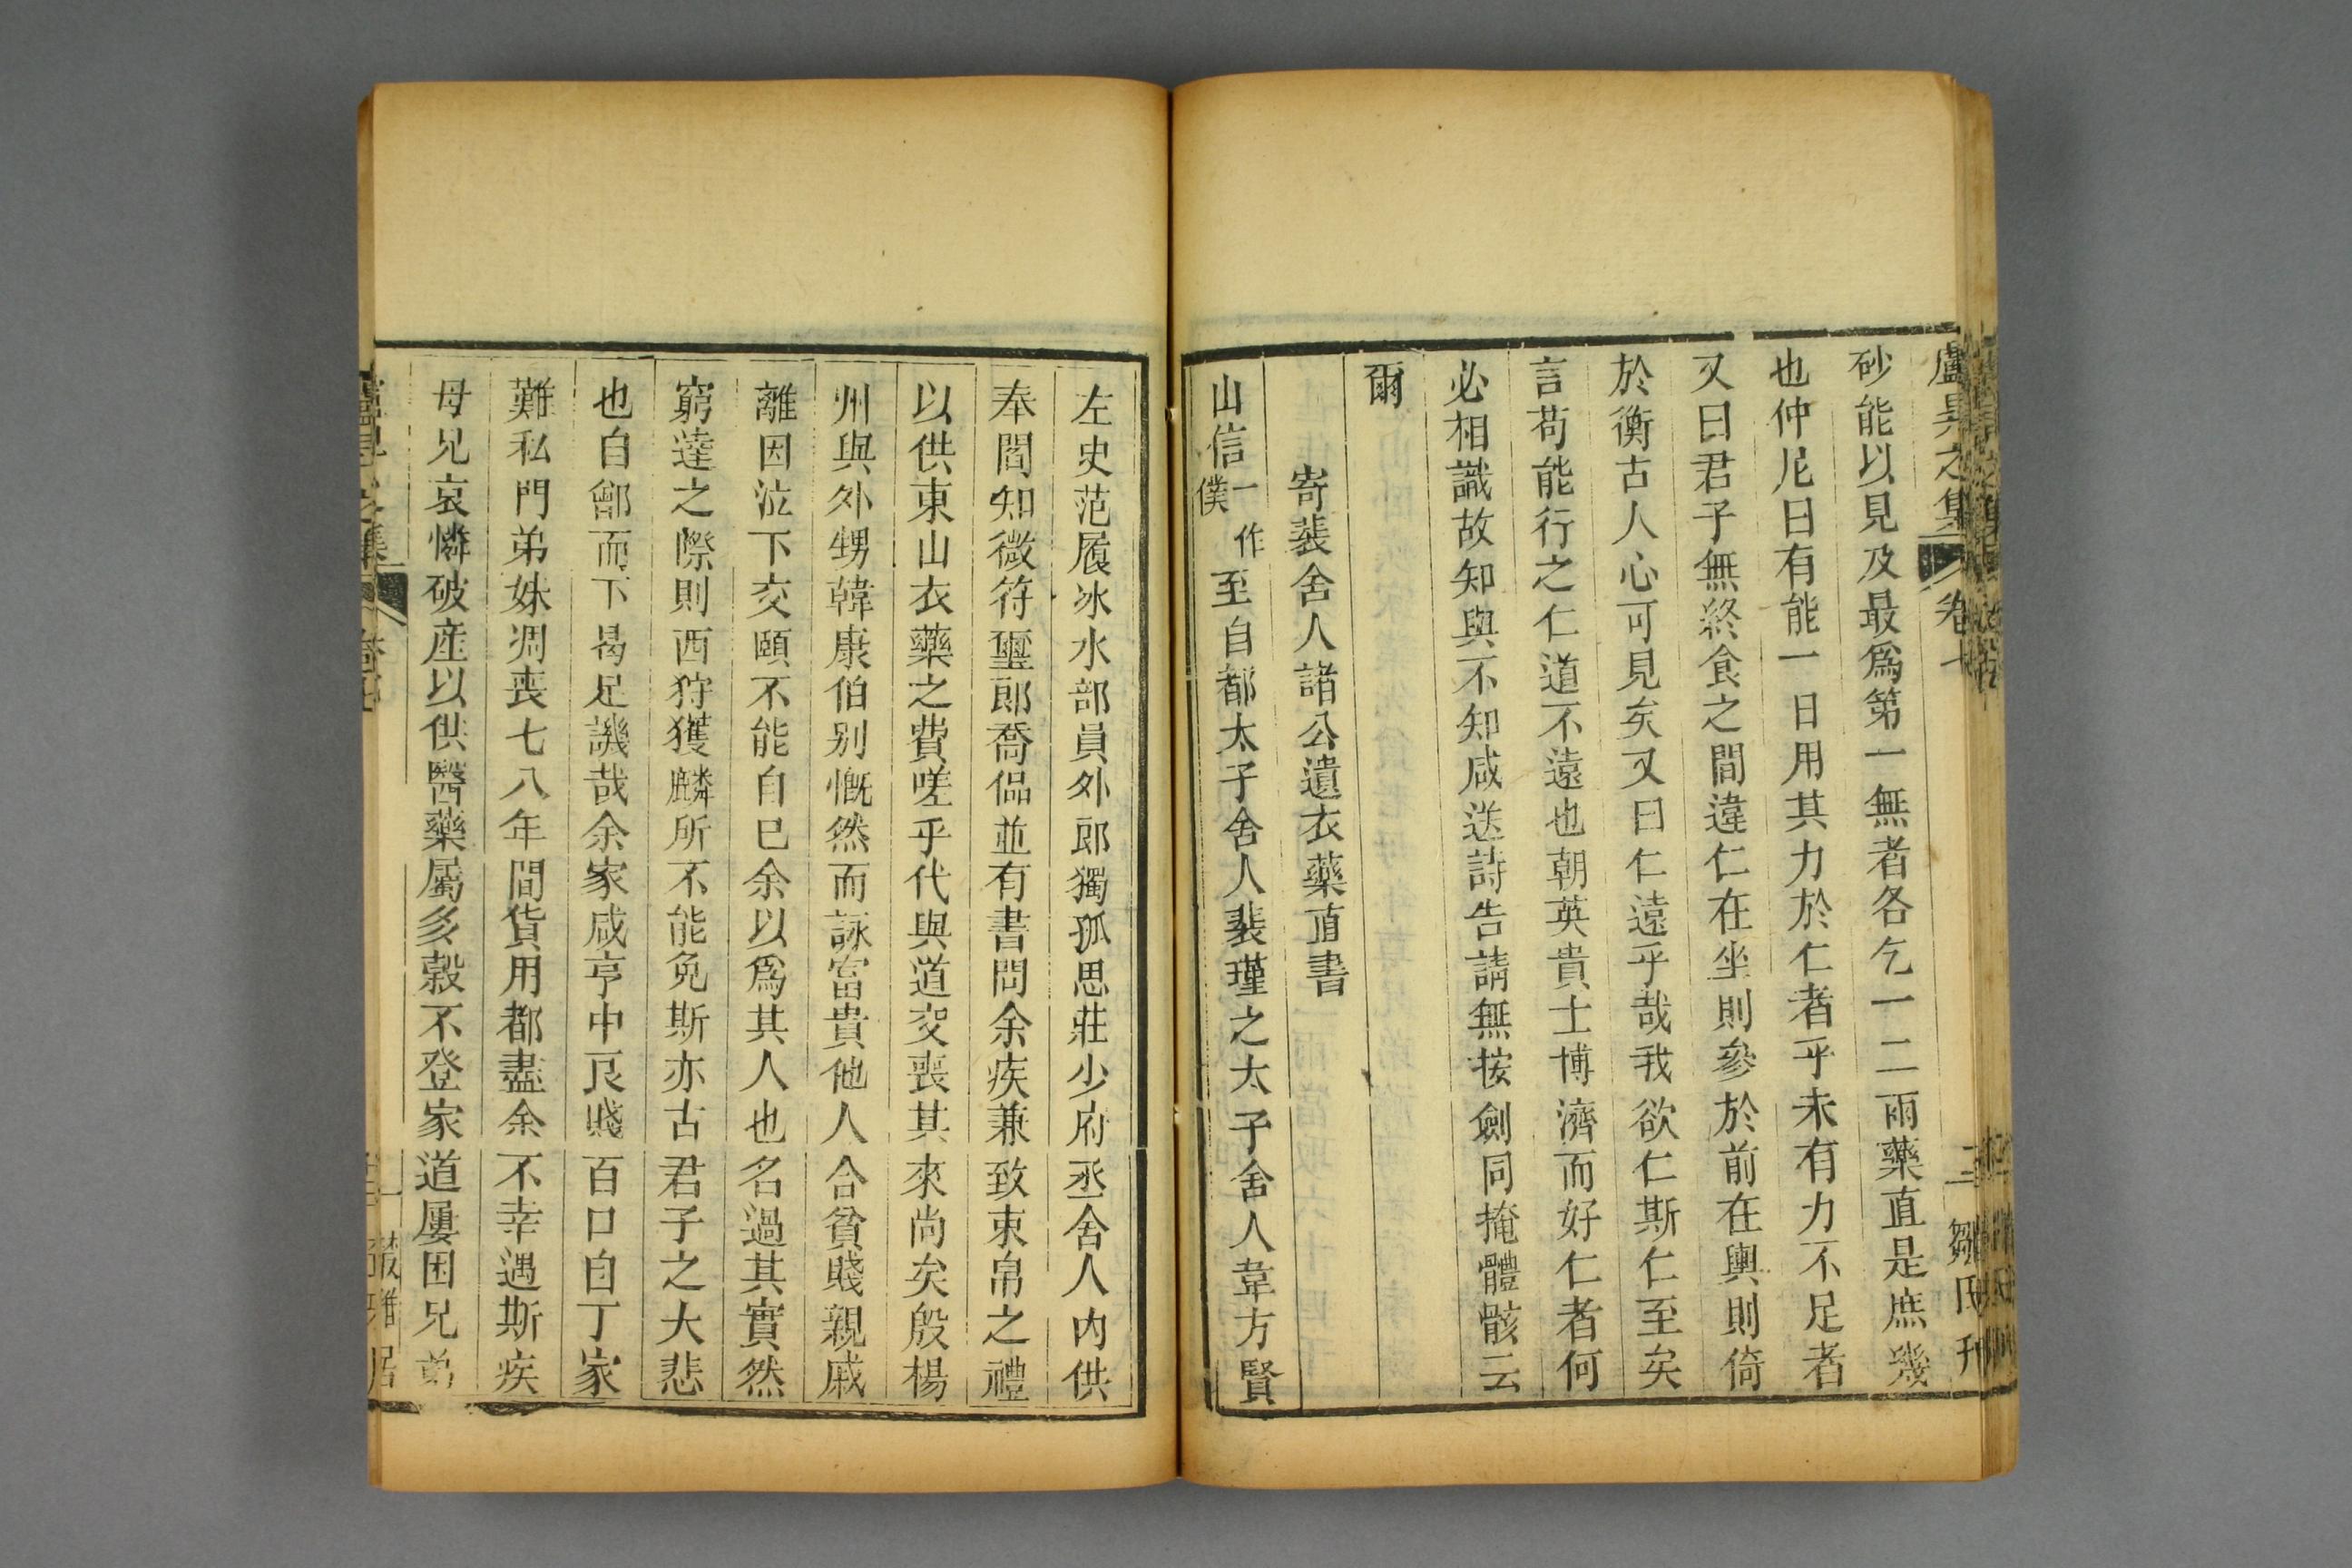 盧昇之集 卷七 二 鄒氏刊
砂能以見及最爲第一無者各乞一二兩藥直是庶幾
也仲尼曰有能一日用其力於仁者乎未有力不足者
又曰君子無終食之間違仁在坐則參於前在輿則倚
於衡古人心可見矣又曰仁遠乎哉我欲仁斯仁至矣
言苟能行之仁道不遠也朝英貴士博濟而好仁者何
必相識故知與不知咸送詩告請無按劍同掩體骸云
爾
寄裴舍人諸公遺衣藥直書
山信一作僕至自都太子舍人裴瑾之太子舍人韋方賢
左史范履冰水部員外郎獨孤思莊少府丞舍人內供
奉閻知微符璽郎喬偘並有書問余疾兼致束帛之禮
以供東山衣藥之費嗟乎代與道交喪其來尚矣殷楊
州與外甥韓康伯别慨然而詠富貴他人合貧賤親戚
離因泣下交頤不能自已余以爲其人也名過其實然
窮達之際則西狩獲麟所不能免斯亦古君子之大悲
也自鄶而下曷足譏哉余家咸亨中良賤百口自丁家
難私門弟妹凋喪七八年間貨用都盡余不幸遇斯疾
母兄哀憐破産以供醫藥屬多穀不登家道屢困兄弟